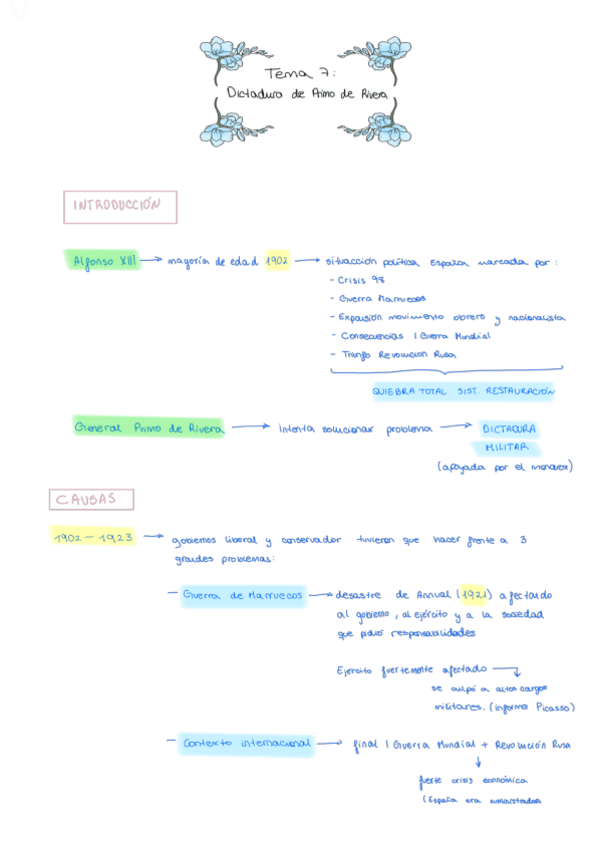 Tema 7:
Dictadura de Primo de Rivera
INTRODUCCIÓN
Alfonso XIII → mayoría de edad 1902 → situacción política España marcada por:
- Crisis 98
- Guerra Marruecos
- Expansión movimiento obrero y nacionalista
- Consecuencias I Guerra Mundial
- Triunfo Revolucion Rusa
QUIEBRA TOTAL SIST. RESTAURACIÓN
General Primo de Rivera → intenta solucionar problema → DICTADURA
MILITAR
(apoyada por el monarca)
CAUSAS
1902 - 1923 → gobiernos liberal y conservador tuvieron que hacer frente a 3
grandes problemas:
- Guerra de Marruecos → desastre de Annual (1921) afectando
al gobierno, al ejército y a la sociedad
que pidió responsabilidades
Ejercito fuertemente afectado →
se culpó a altos cargos
militares. (informe Picasso)
- Contexto internacional → final I Guerra Mundial + Revolución Rusa
↓
fuerte crisis económica
(España era suministradora